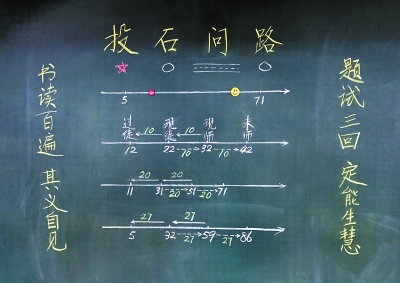 投石问路
书读百遍 其义自见
题试三回 定能生慧
5 71
过徒 现徒 现师 未师
10 10
12 22 32 42
10 10
20 20
11 31 51 71
20 20
27 27
5 32 59 86
27 27